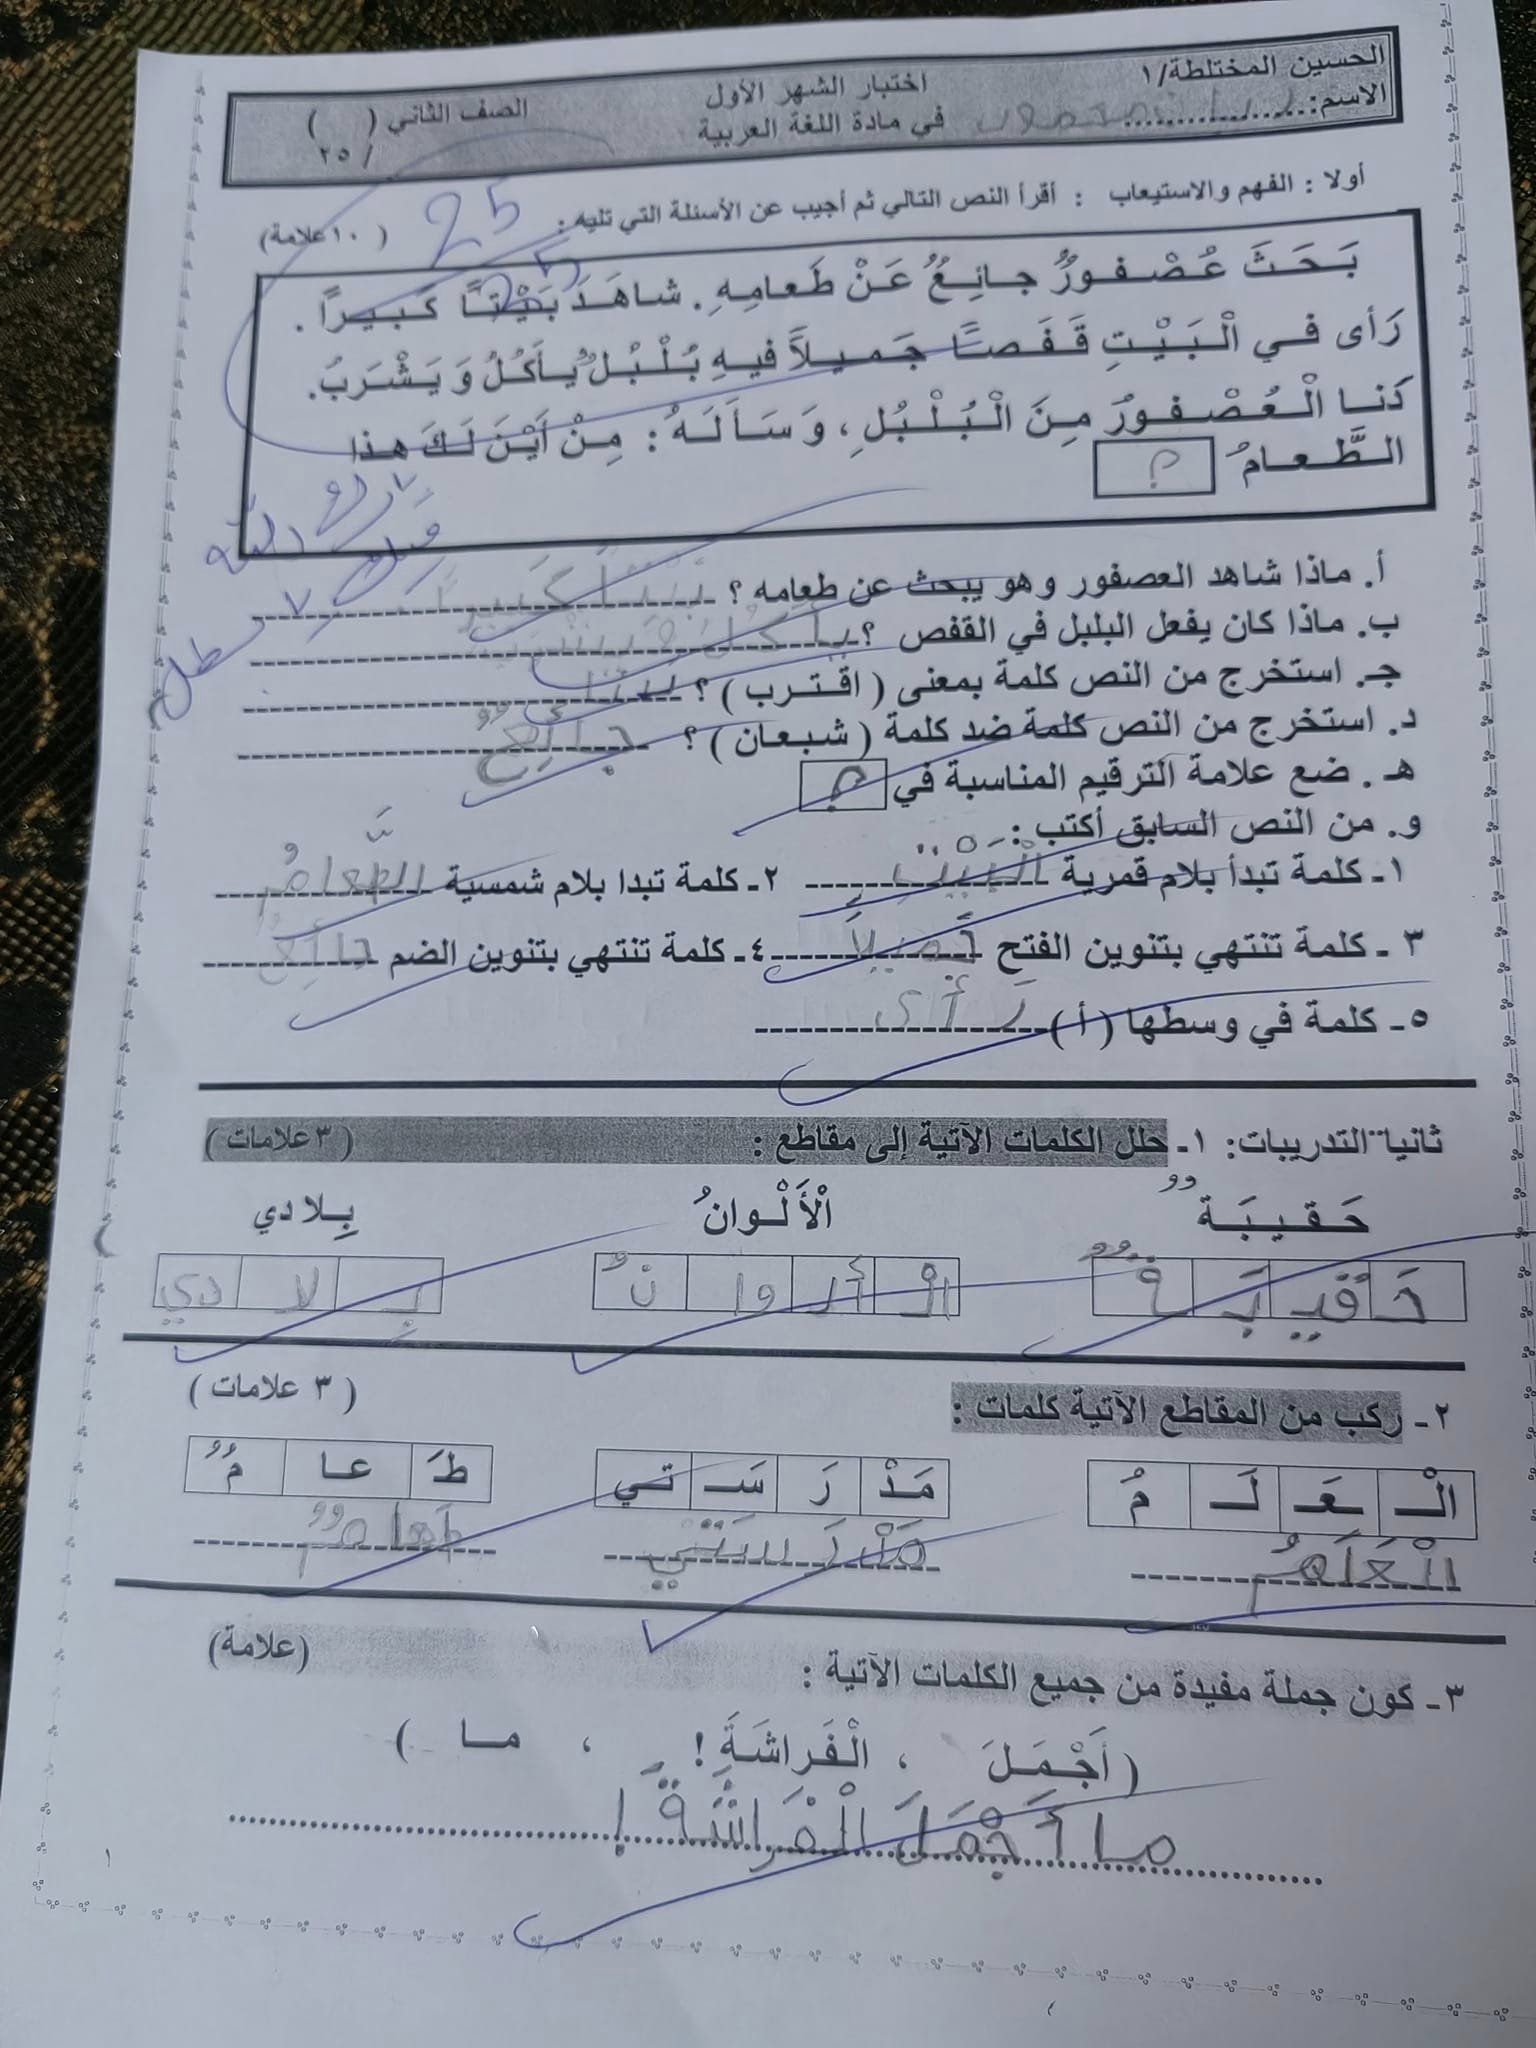 الحسين المختلطة/١ اختبار الشهر الأول الصف الثاني ( )
الاسم: في مادة اللغة العربية / ٢٥
أولا : الفهم والاستيعاب : أقرأ النص التالي ثم أجيب عن الأسئلة التي تليه : ( ١٠علامة)
25
25
بَحَثَ عُصْفورٌ جائِعٌ عَنْ طَعامِهِ . شاهَدَ بَيْتًا كَبيرًا .
رَأى في الْبَيْتِ قَفَصًا جَميلاً فيهِ بُلْبُلٌ يأَكُلُ وَ يَشْرَبُ.
دَنا الْعُصْفورُ مِنَ الْبُلْبُلِ ، وَ سَأَلَهُ : مِنْ أَيْنَ لَكَ هذا
الطَّعامُ ؟
بارك الله
فيك
بطل
أ. ماذا شاهد العصفور وهو يبحث عن طعامه ؟ بَيْتًا كَبيرًا
ب. ماذا كان يفعل البلبل في القفص ؟ يأكُلُ وَيَشْرَبُ
جـ. استخرج من النص كلمة بمعنى ( اقترب ) ؟ دنا
د. استخرج من النص كلمة ضد كلمة ( شبعان ) ؟ جائِعٌ
هـ . ضع علامة الترقيم المناسبة في ؟
و. من النص السابق أكتب :
١- كلمة تبدأ بلام قمرية الْبَيْتِ ٢- كلمة تبدا بلام شمسية الطَّعامُ
٣ - كلمة تنتهي بتنوين الفتح جَميلاً ٤- كلمة تنتهي بتنوين الضم جائِعٌ
٥- كلمة في وسطها ( أ ) رأى
ثانيا:التدريبات: ١- حلل الكلمات الآتية إلى مقاطع : ( ٣ علامات )
حَقيبَةٌ الْأَلْوانُ بِلادي
حَ قيـ بَـ ةٌ الْـ أَلْـ وا نُ بِـ لا دي
٢- ركب من المقاطع الآتية كلمات : ( ٣ علامات )
الْـ ـعَـ لَـ مُ مَدْ رَ سَـ تي طَـ عا مٌ
الْعَلَمُ مَدْرَسَتي طَعامٌ
٣- كون جملة مفيدة من جميع الكلمات الآتية : (علامة)
( أَجْمَلَ ، الْفَراشَةَِ ! ، ما )
ما أَجْمَلَ الْفَراشَةَ !
١